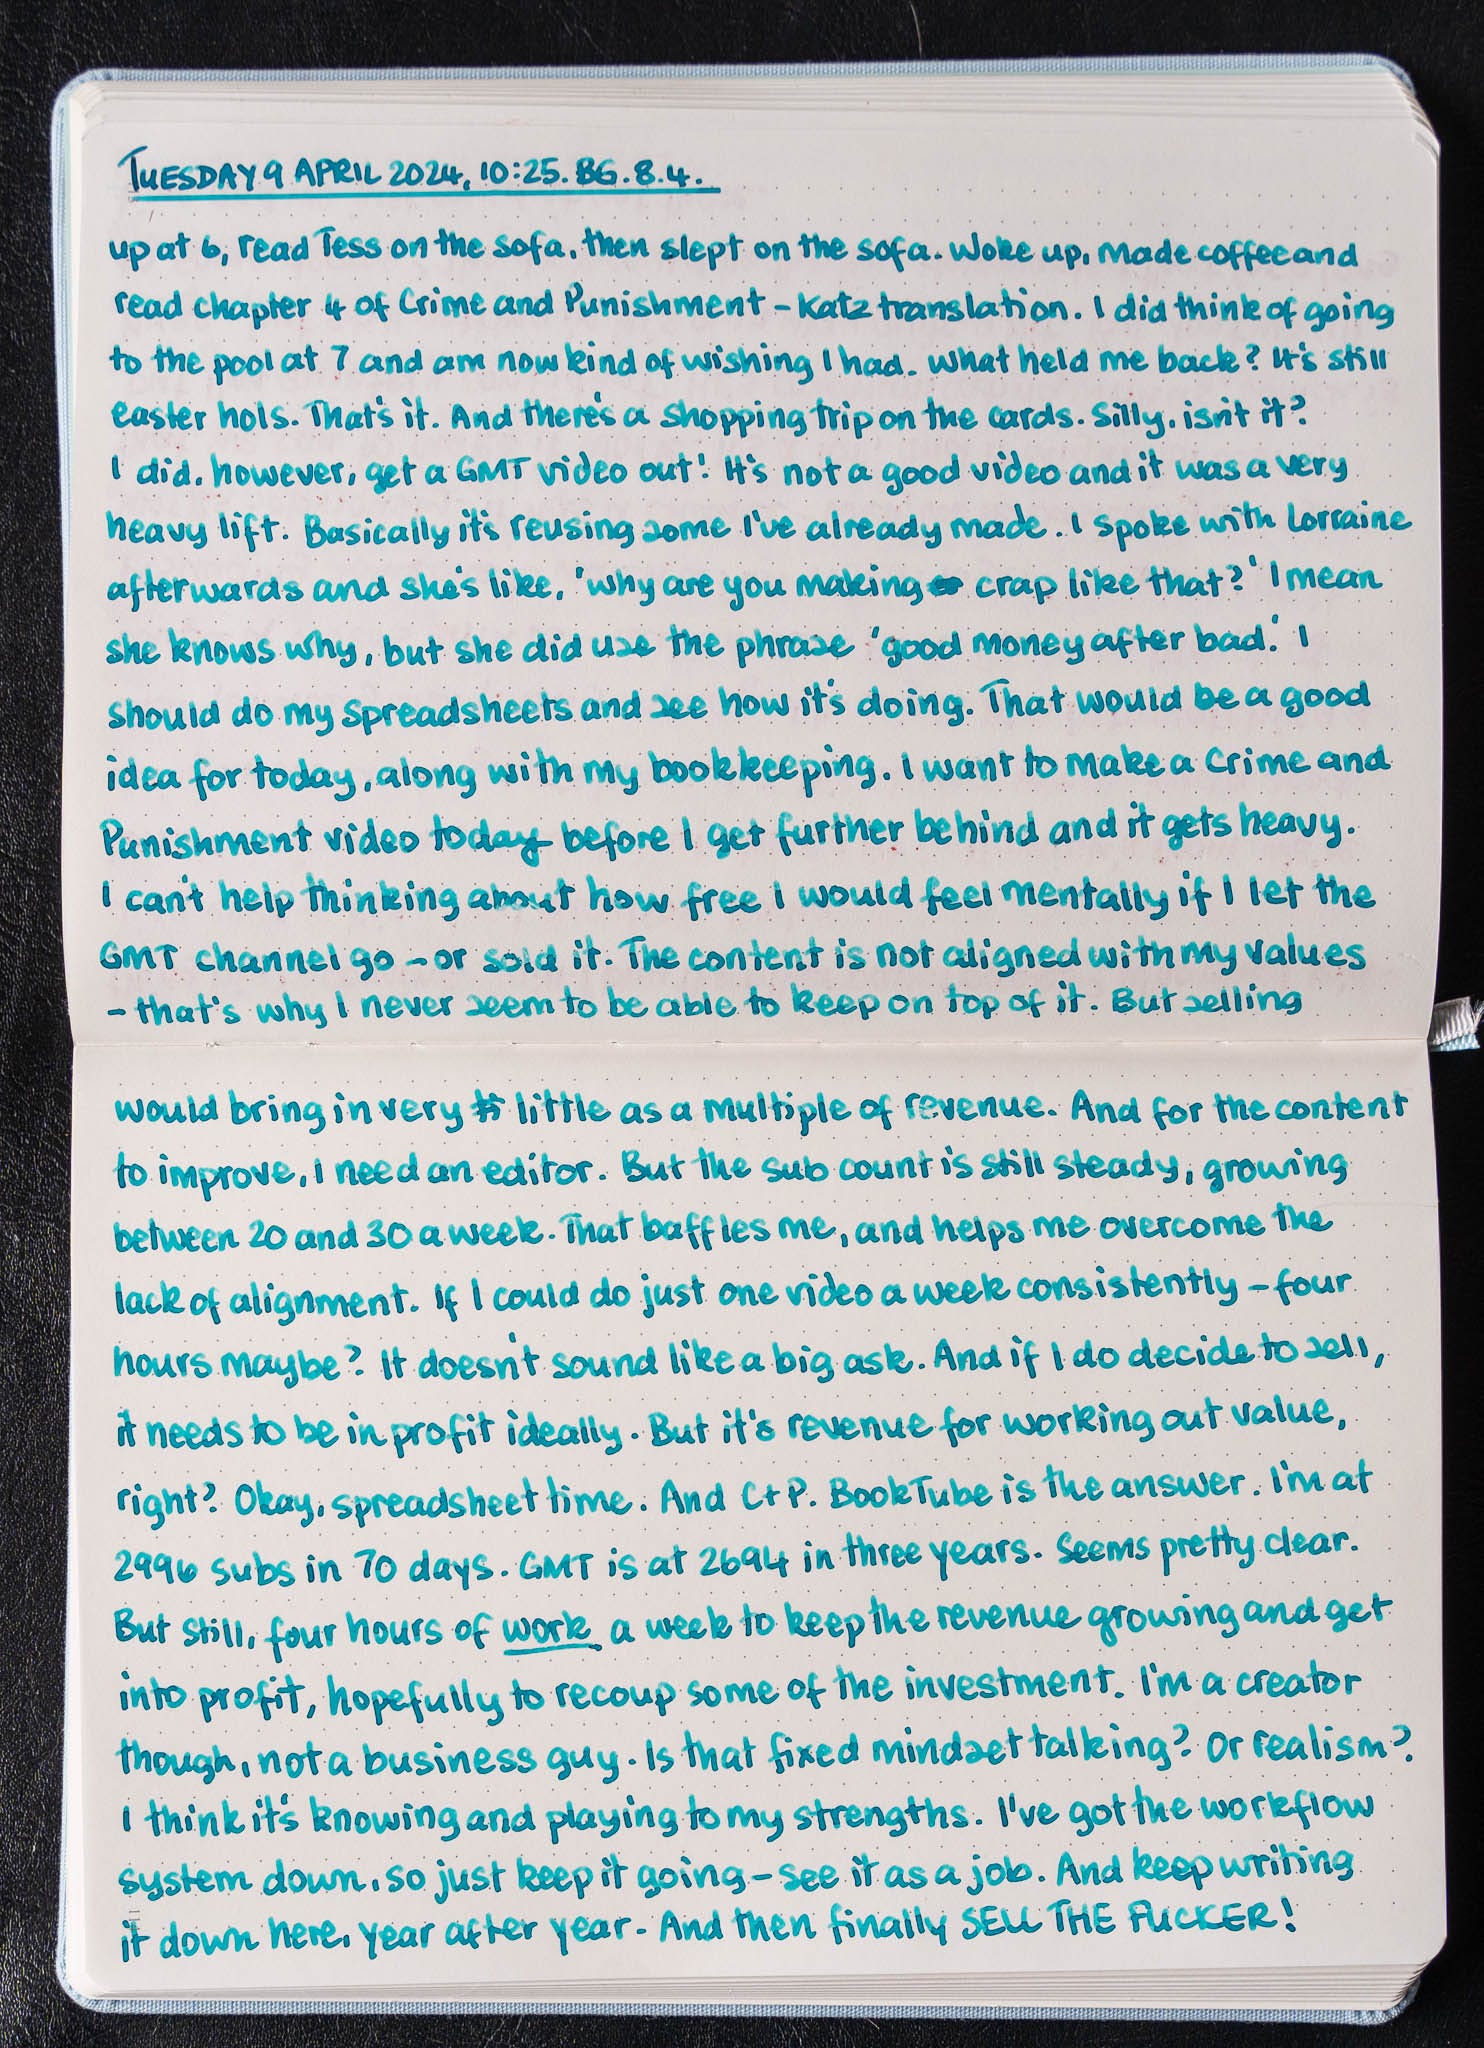 TUESDAY 9 APRIL 2024, 10:25. BG. 8.4.
up at 6, read Tess on the sofa, then slept on the sofa. Woke up, made coffee and
read chapter 4 of Crime and Punishment - Katz translation. I did think of going
to the pool at 7 and am now kind of wishing I had. What held me back? It's still
easter hols. That's it. And there's a shopping trip on the cards. Silly, isn't it?
I did, however, get a GMT video out! It's not a good video and it was a very
heavy lift. Basically it's reusing some I've already made. I spoke with Lorraine
afterwards and she's like, 'why are you making crap like that?' I mean
she knows why, but she did use the phrase 'good money after bad.' I
should do my spreadsheets and see how it's doing. That would be a good
idea for today, along with my bookkeeping. I want to make a Crime and
Punishment video today before I get further behind and it gets heavy.
I can't help thinking about how free I would feel mentally if I let the
GMT channel go - or sold it. The content is not aligned with my values
- that's why I never seem to be able to keep on top of it. But selling
would bring in very little as a multiple of revenue. And for the content
to improve, I need an editor. But the sub count is still steady, growing
between 20 and 30 a week. That baffles me, and helps me overcome the
lack of alignment. If I could do just one video a week consistently - four
hours maybe? It doesn't sound like a big ask. And if I do decide to sell,
it needs to be in profit ideally. But it's revenue for working out value,
right? Okay, spreadsheet time. And C+P. BookTube is the answer. I'm at
2996 subs in 70 days. GMT is at 2694 in three years. Seems pretty clear.
But still, four hours of work a week to keep the revenue growing and get
into profit, hopefully to recoup some of the investment. I'm a creator
though, not a business guy. Is that fixed mindset talking? Or realism?
I think it's knowing and playing to my strengths. I've got the workflow
system down, so just keep it going - see it as a job. And keep writing
it down here, year after year. And then finally SELL THE FUCKER!